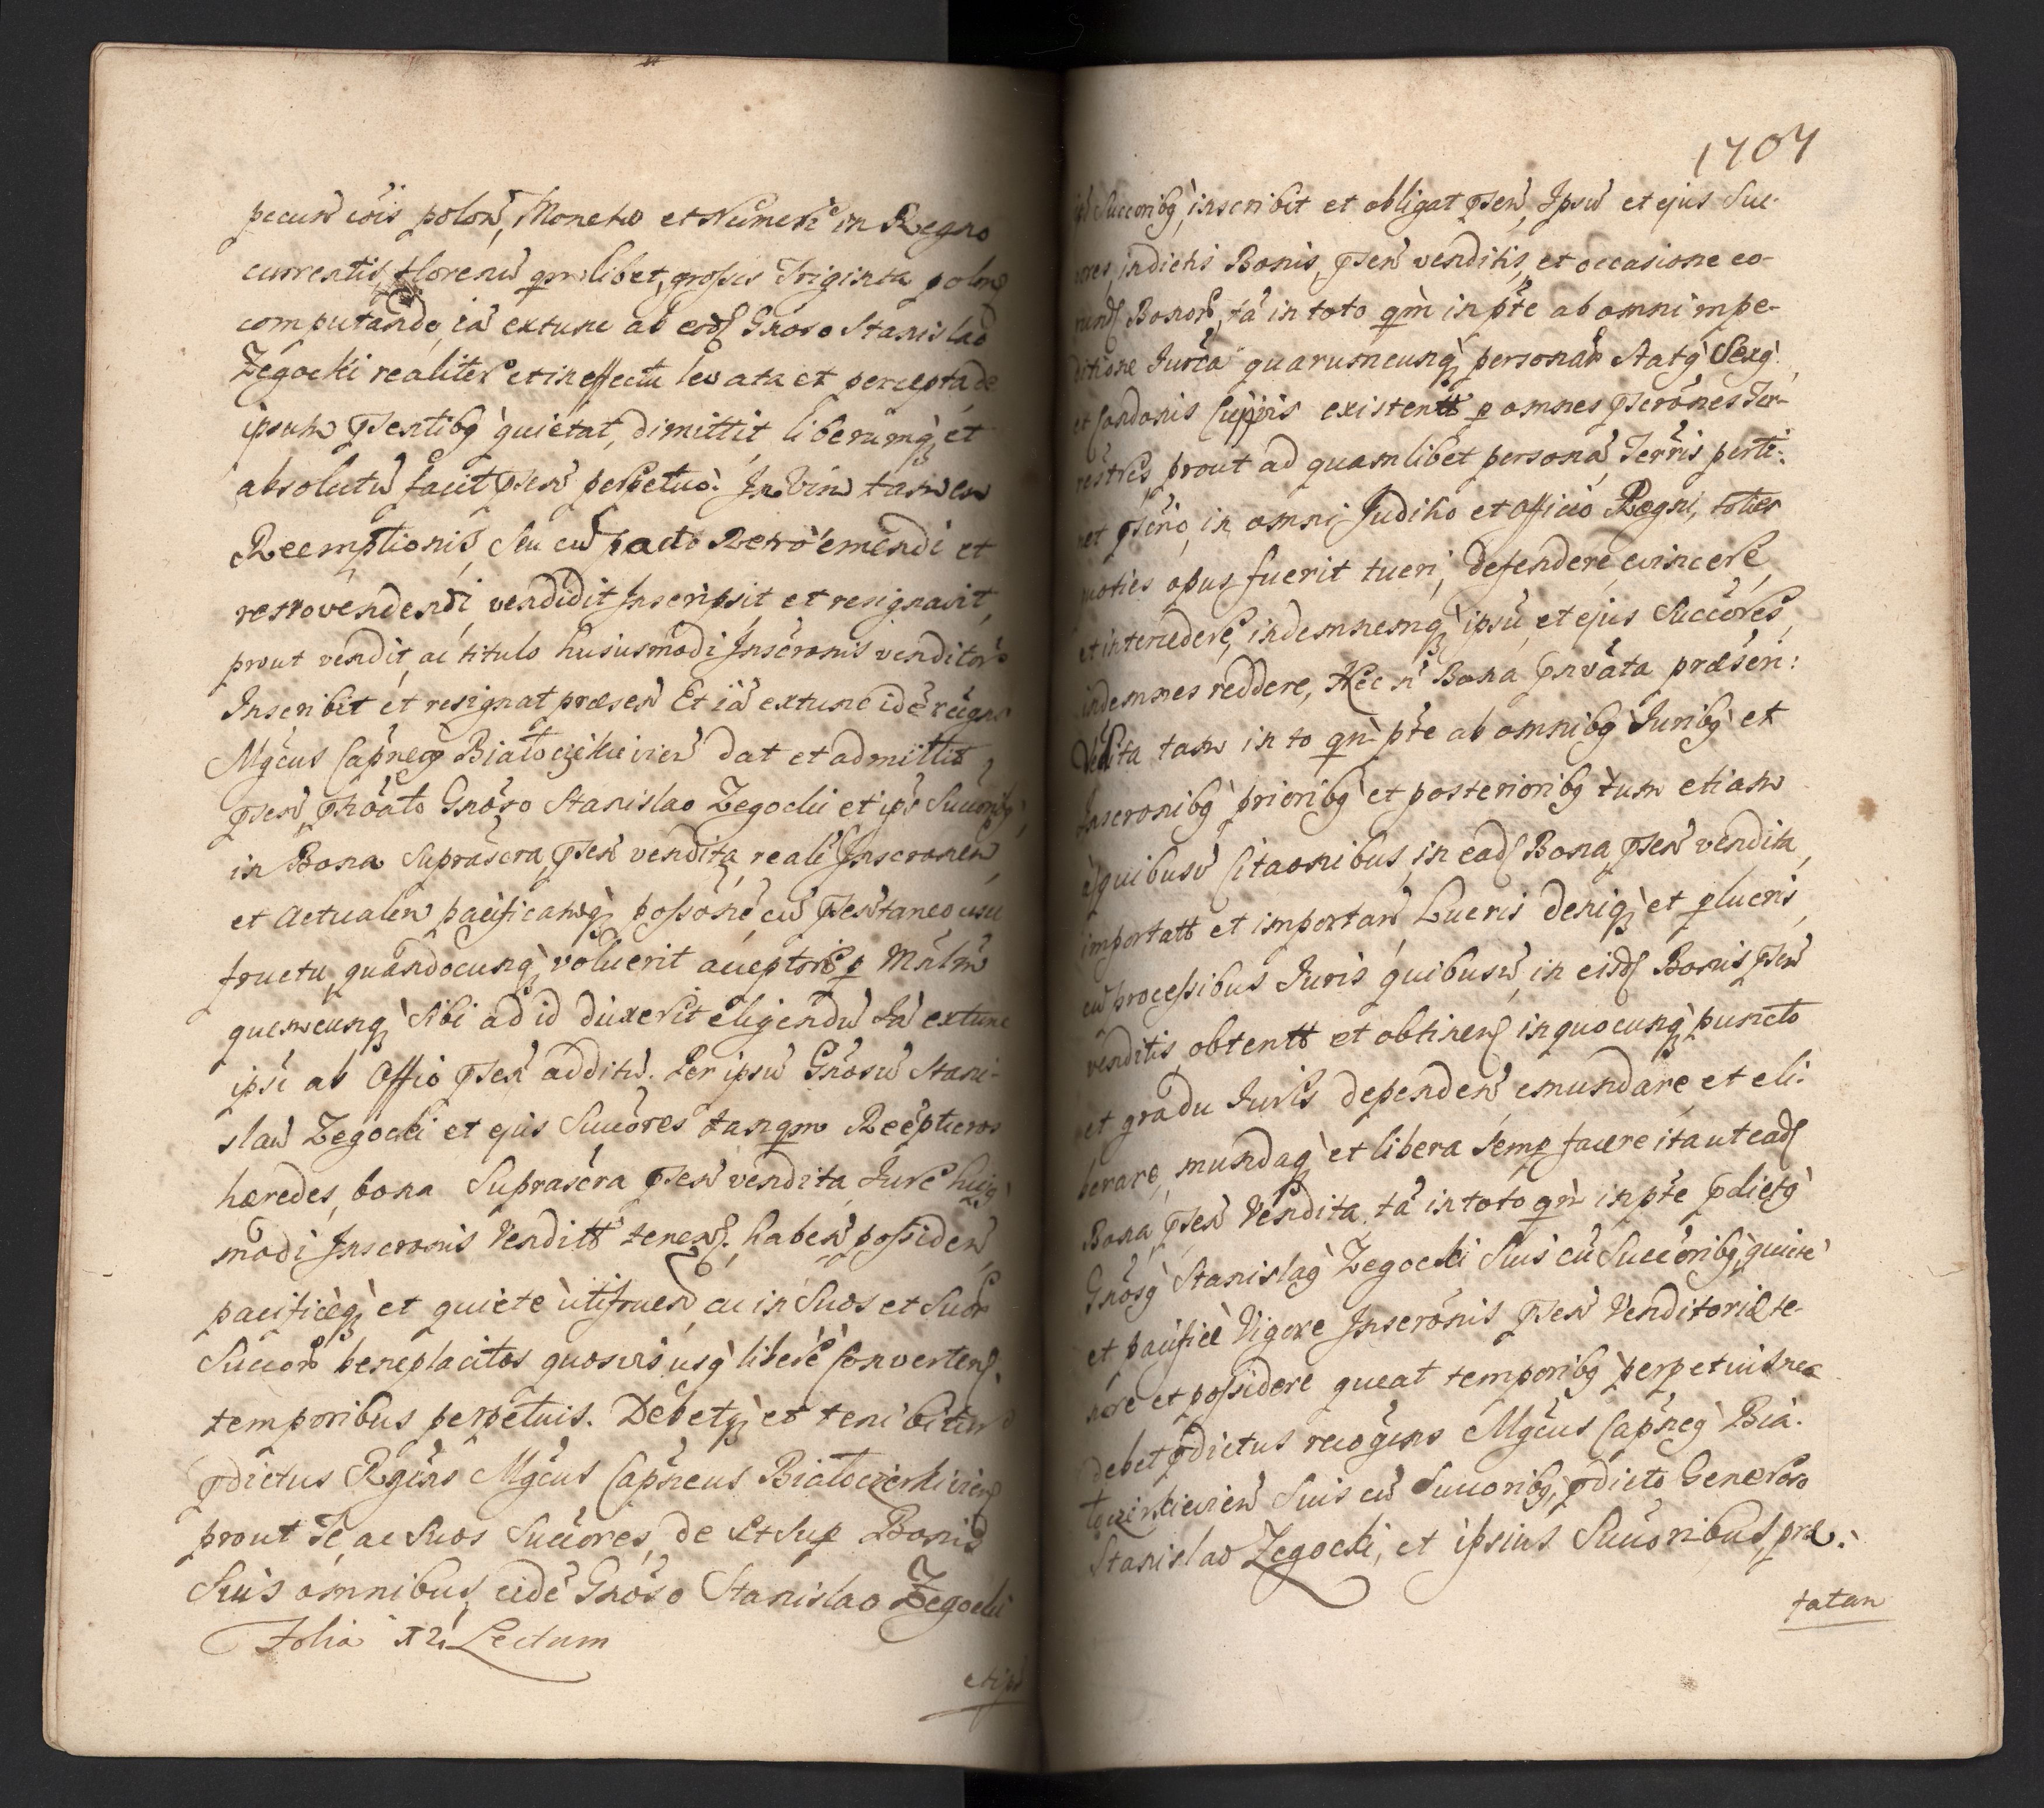 pecuń cöis poloń, Moneta et Numeri in Regno
currentis, florenū qmlibet, grossis Triginta polon
computando, iā extunc ab eodꝫ Gnoso Stanislao
Zegocki realiter et in effectu levata et percepta de
ipsum pſentibꝫ quietat, dimittit, liberumqꝫ et
absolutū facit pſeń perpetuò. In Vim tamen
Reemptionis, seu cū pacto Retro emendi et
retrovendendi, vendidit Inscripsit et resignavit,
prout vendit, ac titulo hujusmodi Inscronis venditoriō
Inscribit et resignat præseń Et iā extunc idē recogns
Mgcus Capneꝰ Białocerkievień dat et admittit
pſeń, pnoato Gnoso Stanislao Zegocki et ips Succoribꝫ
in Bona Suprascra, pſeń vendita, realē Inscronem,
et Actualem pacificamqꝫ possonē, cū pſentaneo usu
fructu, quandocunqꝫ voluerit acceptor p Mnlm
quemcunqꝫ sibi ad id duxerit eligendū Iā extunc
ipsi ab Offio pſeń additū. Per ipsū Gnosū Stani-
slaū Zegocki et ejus Succores tanqm Reempturos
hæredes, bona Suprascra pſeń vendita, Jure hujꝰ
modi Inscronis Vendittt tenenꝫ, habeń possideń
pacificeqꝫ et quiete utifrueń, ac in Suos et Suor
Succor beneplacitos quosvis usꝰ libere Convertenꝫ.
temporibus perpetuis. Debetqꝫ et tenebitur
pdictus Rgcns Mgcus Capneus Białocerkievienꝫ
prout Se ac Suos Succores, de et Sup Bonis
Suis omnibus, eidē Gnoso Stanislao Zegocki
Folia XI Lectum
et ips
1707
ips Succoribꝫ, inscribit et obligat pſeń, Ipsū et ejus Suc-
cores, in dictis Bonis, pſeń venditis, et occasione eo-
rundꝫ Bonor, tā in toto qm in pte ab omni impe-
ditione Jurca quarumcunqꝫ personar Statꝰ, Sexꝰ
et Condonis Cujvis existentt p omnes pscrones Ter-
restres, prout ad quamlibet personā Terris perti-
net pscrio, in omni Judiho et Officio Regni, toties
quoties opus fuerit tueri, defendere, evincere,
et intercedere, indemnemqꝫ ipsū, et ejus Succores
indemnes reddere, Hæc n Bona privata præsen:
Vendita tam in to qm pte ab omnibꝫ Juribꝫ et
Inscronibꝫ prioribꝫ et posterioribꝫ tum etiam
a quibusv Citaonibus, in eadꝫ Bona, pſeń vendita,
importatt et importań Lucris deniqꝫ et plucris,
cū processibus Juris quibusv, in eisdꝫ Bonis pſeń
venditis, obtentt et obtinenꝫ in quocunqꝫ puncto
et gradu Juris dependeń, emundare et eli-
berare, mundaqꝫ et libera semp facere ita ut eadꝫ
Bona, pſeń Vendita, tā in toto qm in pte pdictꝰ
Gnosꝰ Stanislaꝰ Zegocki Suis cū Succoribꝫ, quiete
et pacifice Vigore Inscronis pſeń Venditoriæ te-
nere et possidere queat temporibꝫ perpetuis nec
debet pdictus recogcns Mgcus Capneꝰ Bia-
łocerkievień Suis cū Succoribꝫ, pdicto Generoso
Stanislao Zegocki, et ipsius Succoribus, præ:
tatan